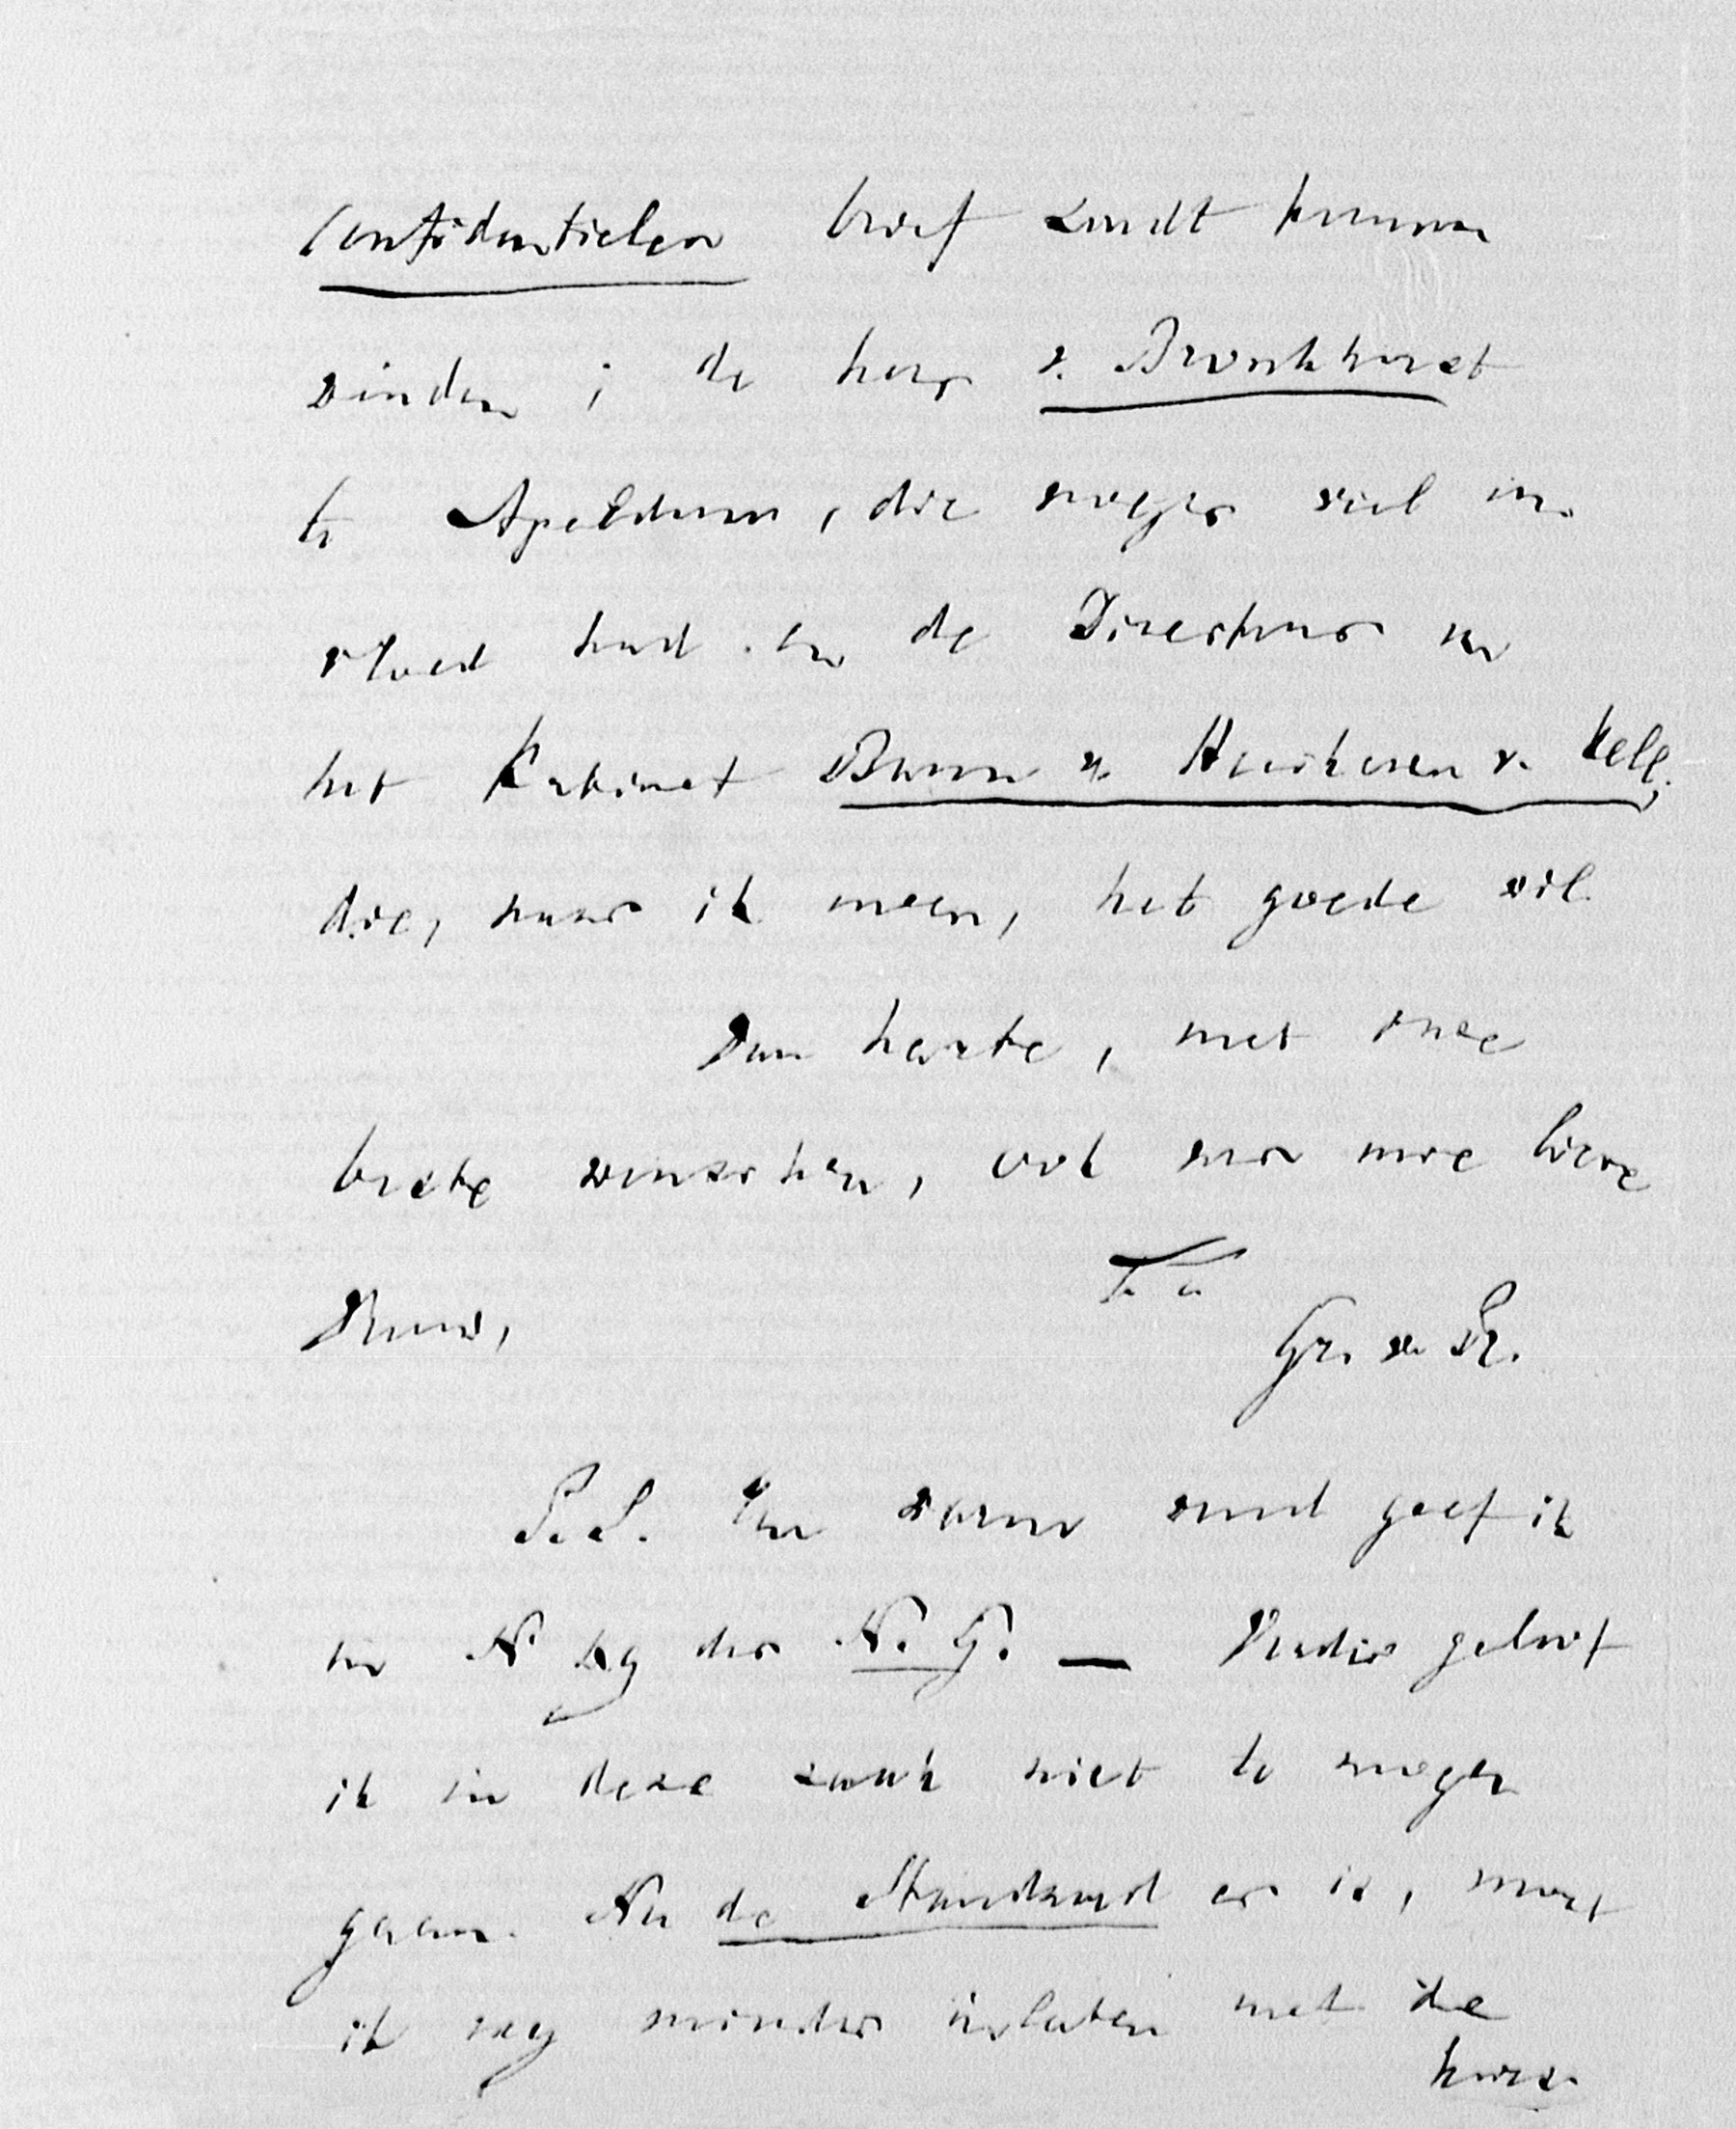 confidentielen brief zoudt kunnen
vinden; de heer v. Bronkhorst
te Apeldoorn, die vroeger veel in-
vloed had. en de Directeur van
het Kabinet Baron v. Heeckeren v. Kell,
die, naar ik meen, het goede wil.
Van harte, met onze
beste wenschen, ook voor uwe lieve
Vrouw,
T. a.
Gr. v. Pr.
P.S. Een warm woord geef ik
in N der N. G. — Verder geloof
ik in deze zaak niet te mogen
gaan. Nu de Standaard er is, moet
ik mij minder inlaten met de